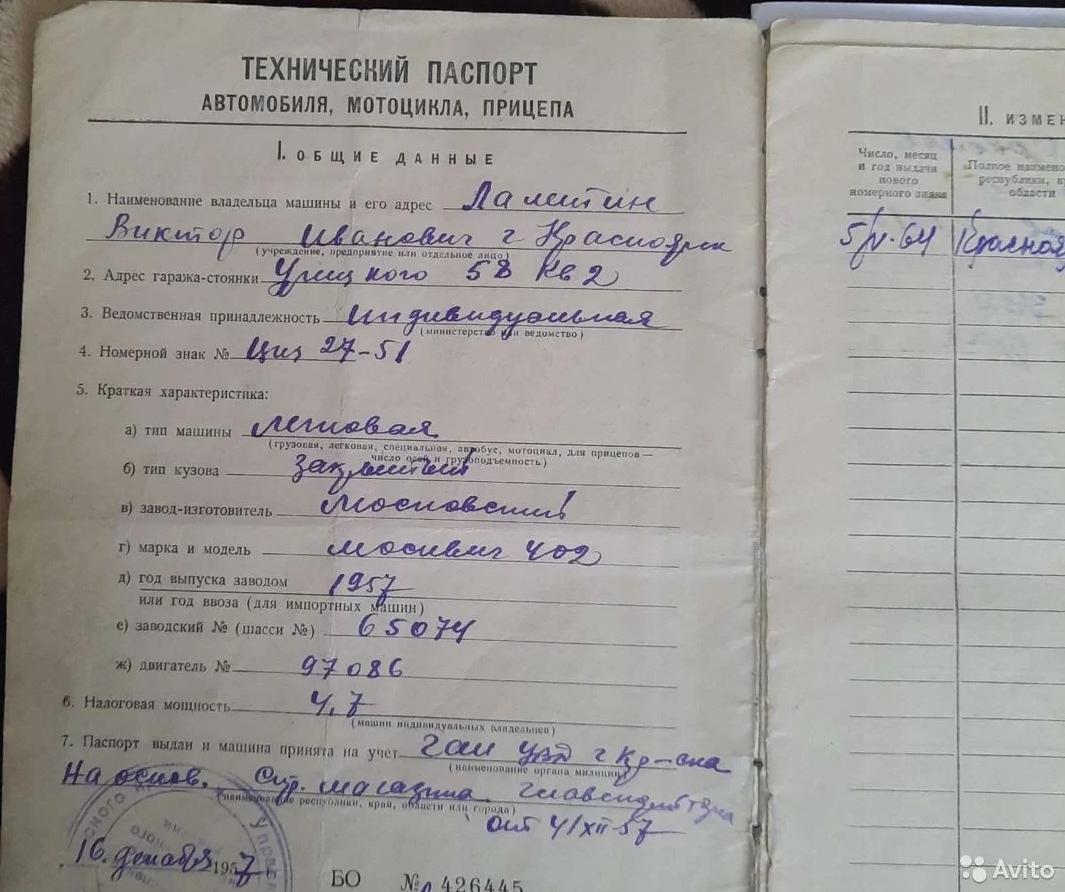 ТЕХНИЧЕСКИЙ ПАСПОРТ
АВТОМОБИЛЯ, МОТОЦИКЛА, ПРИЦЕПА
I. ОБЩИЕ ДАННЫЕ
1. Наименование владельца машины и его адрес
Виктор Иванович г Красноярск
(учреждение, предприятие или отдельное лицо)
2. Адрес гаража-стоянки Урицкого 58 кв 2
3. Ведомственная принадлежность индивидуальная
(министерство или ведомство)
4. Номерной знак № 27-51
5. Краткая характеристика:
а) тип машины легковая
(грузовая, легковая, специальная, автобус, мотоцикл, для прицепов —
число осей и грузоподъемность)
б) тип кузова закрытый
в) завод-изготовитель Московский
г) марка и модель москвич 402
д) год выпуска заводом 1957
или год ввоза (для импортных машин)
е) заводский № (шасси №) 65074
ж) двигатель № 97086
6. Налоговая мощность 4,7
(машин индивидуальных владельцев)
7. Паспорт выдан и машина принята на учет Гаи г Кр-ска
(наименование органа милиции)
На основ. Спр. магазина
(наименование республики, края, области или города)
от 4/XII 57
16 декабря 1957
БО № 426445
II. ИЗМЕН
Число, месяц
и год выдачи
нового
номерного знака
Полное наимено
республики, к
области
5/V-64 Красноя
Avito